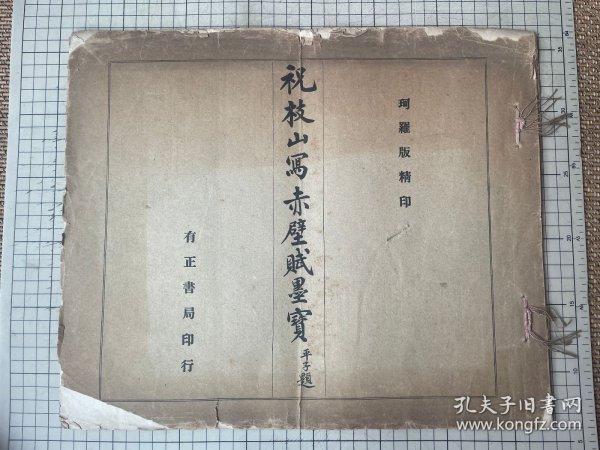 珂羅版精印
祝枝山寫赤壁賦墨寶
平子題
有正書局印行
孔夫子旧书网
www.kongfz.com